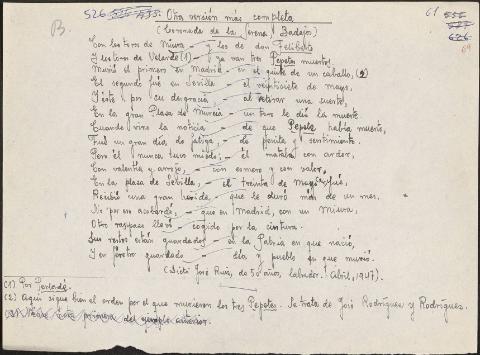 B.
526
Otra versión más completa
61
(Coronada de la Serena) Badajoz)
Con los toros de Miura - y los de don Feliberto
Y los toros de Velarde (1) - ya van tres Pepetes muertos.
Murió el primero en Madrid - en el quite de un caballo, (2)
El segundo fué en Sevilla - el veintisiete de mayo,
Y éste por su desgracia - al retirar una suerte,
En la gran Plaza de Murcia - un toro le dió la muerte.
Cuando vino la noticia - de que Pepete había muerto,
Fué un gran día de fatiga, - de penita y sentimiento.
Pero él nunca tuvo miedo; - él mataba con ardor,
Con valentía y arrojo, - con esmero y con valor.
En la plaza de Sevilla, - el treinta de mayo fué,
Recibió una gran herida, - que le duró más de un mes.
No por eso acobardó, - que en Madrid, con un miura,
Otro raspazo llevó cogido por la cintura.
Sus restos están guardados - en la Patria en que nació,
Y en féretro guardado - día y pueblo en que murió.
(Dictó José Ruiz, de 50 años, labrador. Abril, 1947).
(1) Por Parladé.
(2) Aquí sigue bien el orden por el que murieron los tres Pepetes. Se trata de José Rodríguez y Rodríguez.